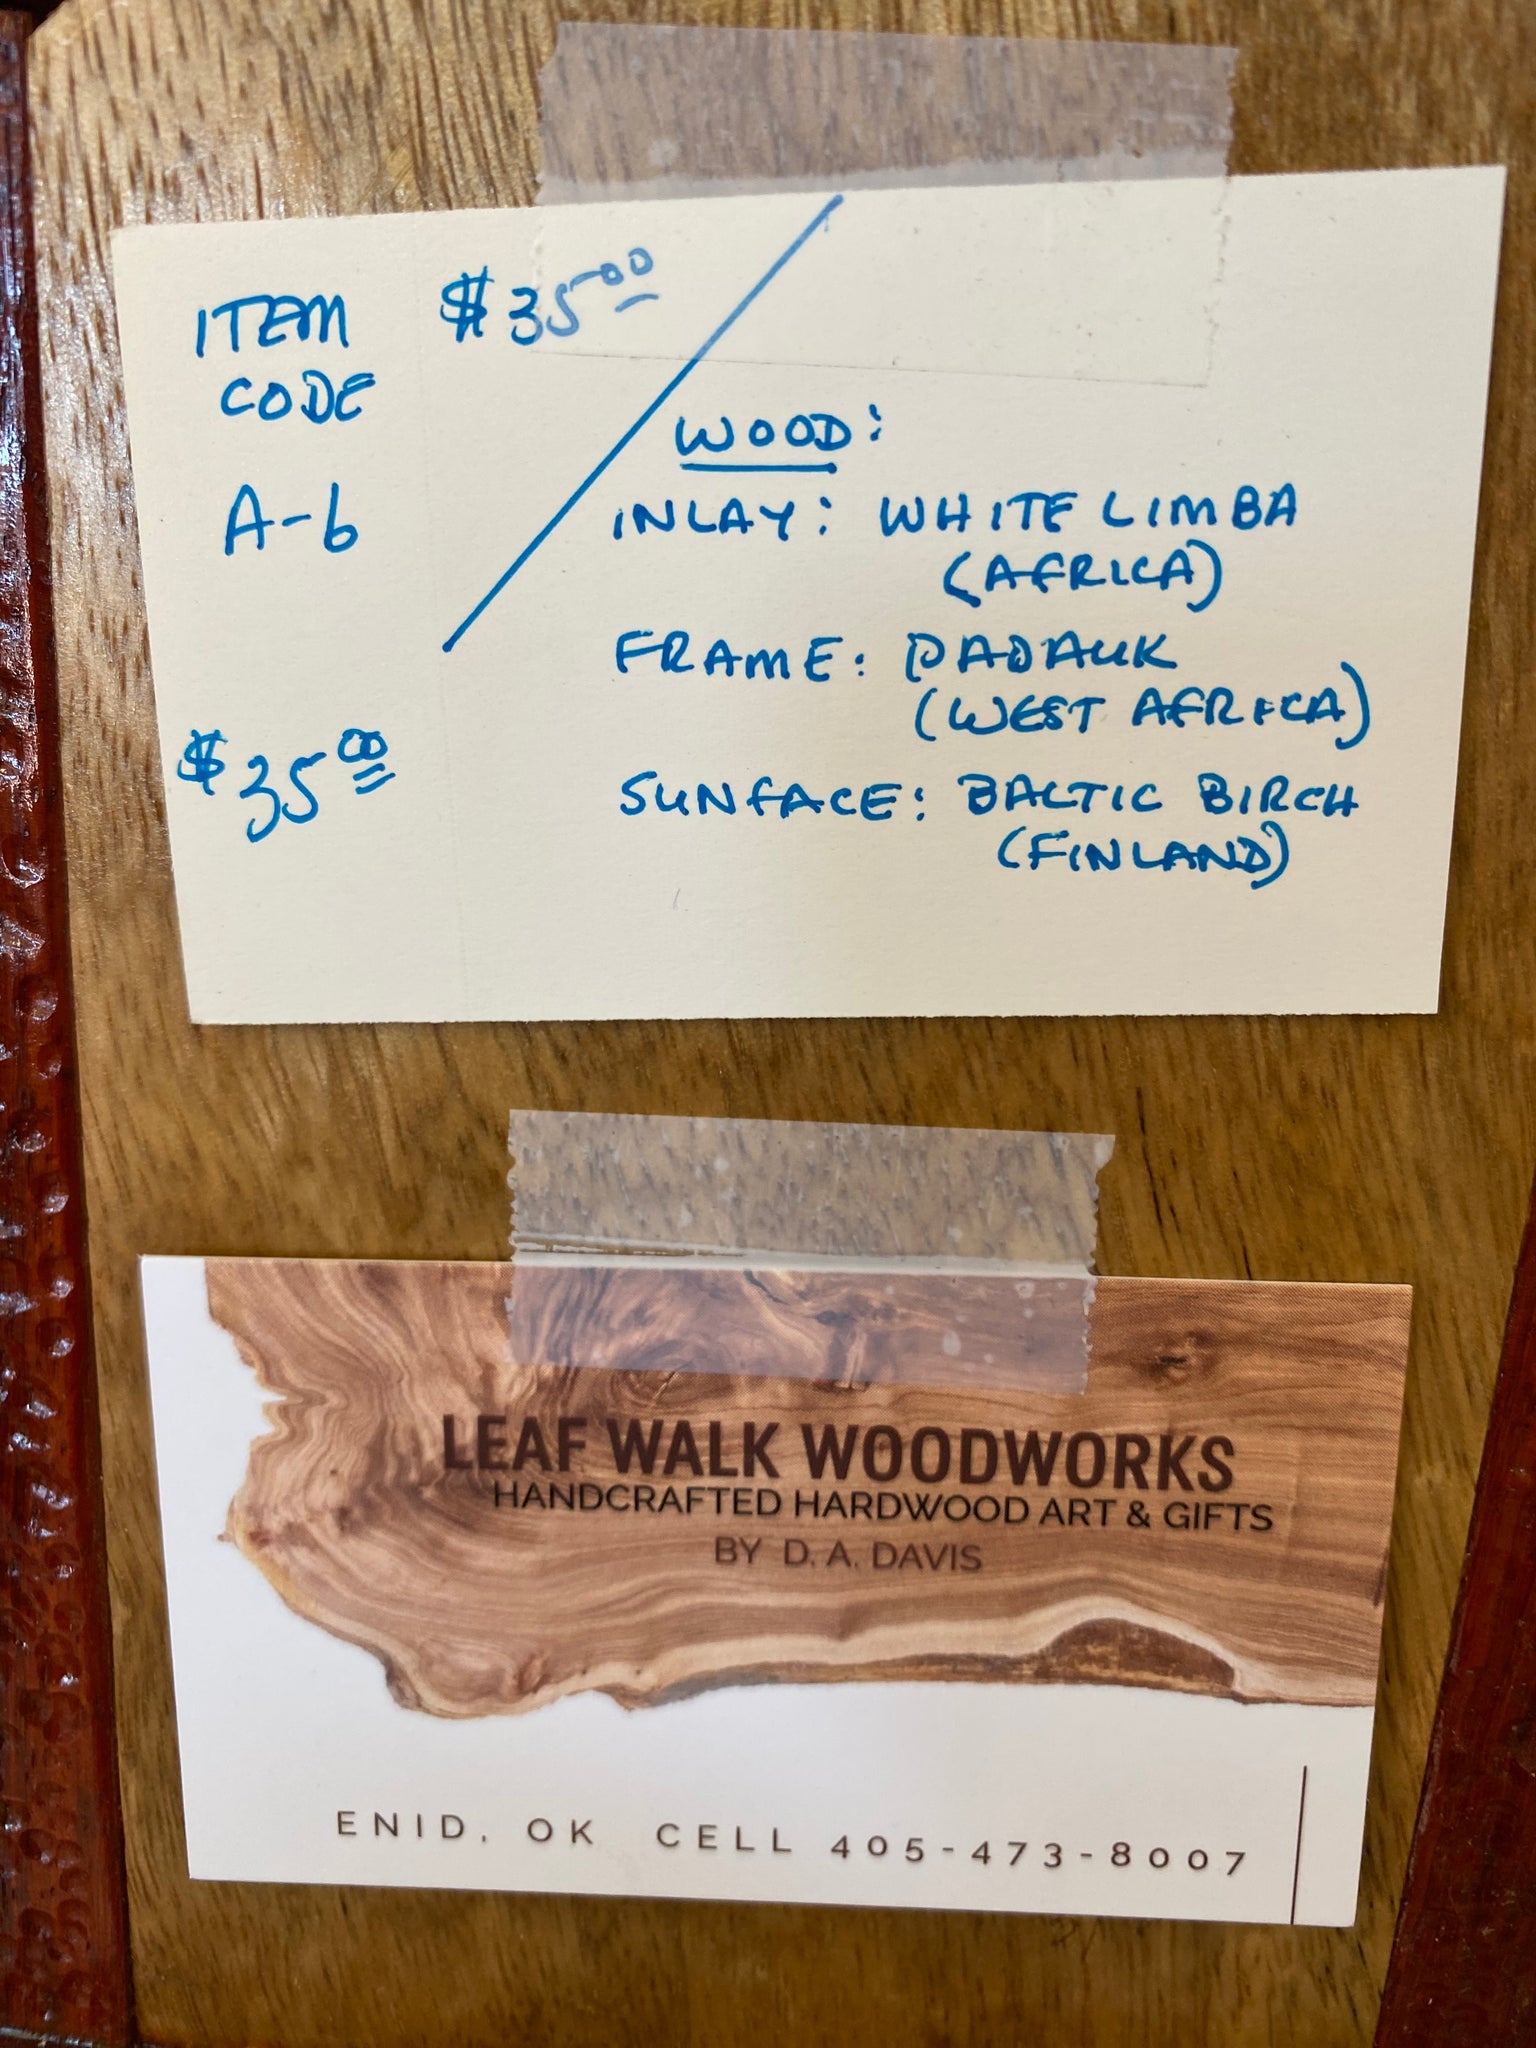 ITEM $35.00
CODE
A-6
$35.00
WOOD:
INLAY: WHITE LIMBA
(AFRICA)
FRAME: PADAUK
(WEST AFRICA)
SURFACE: BALTIC BIRCH
(FINLAND)
LEAF WALK WOODWORKS
HANDCRAFTED HARDWOOD ART & GIFTS
BY D. A. DAVIS
ENID, OK CELL 405-473-8007